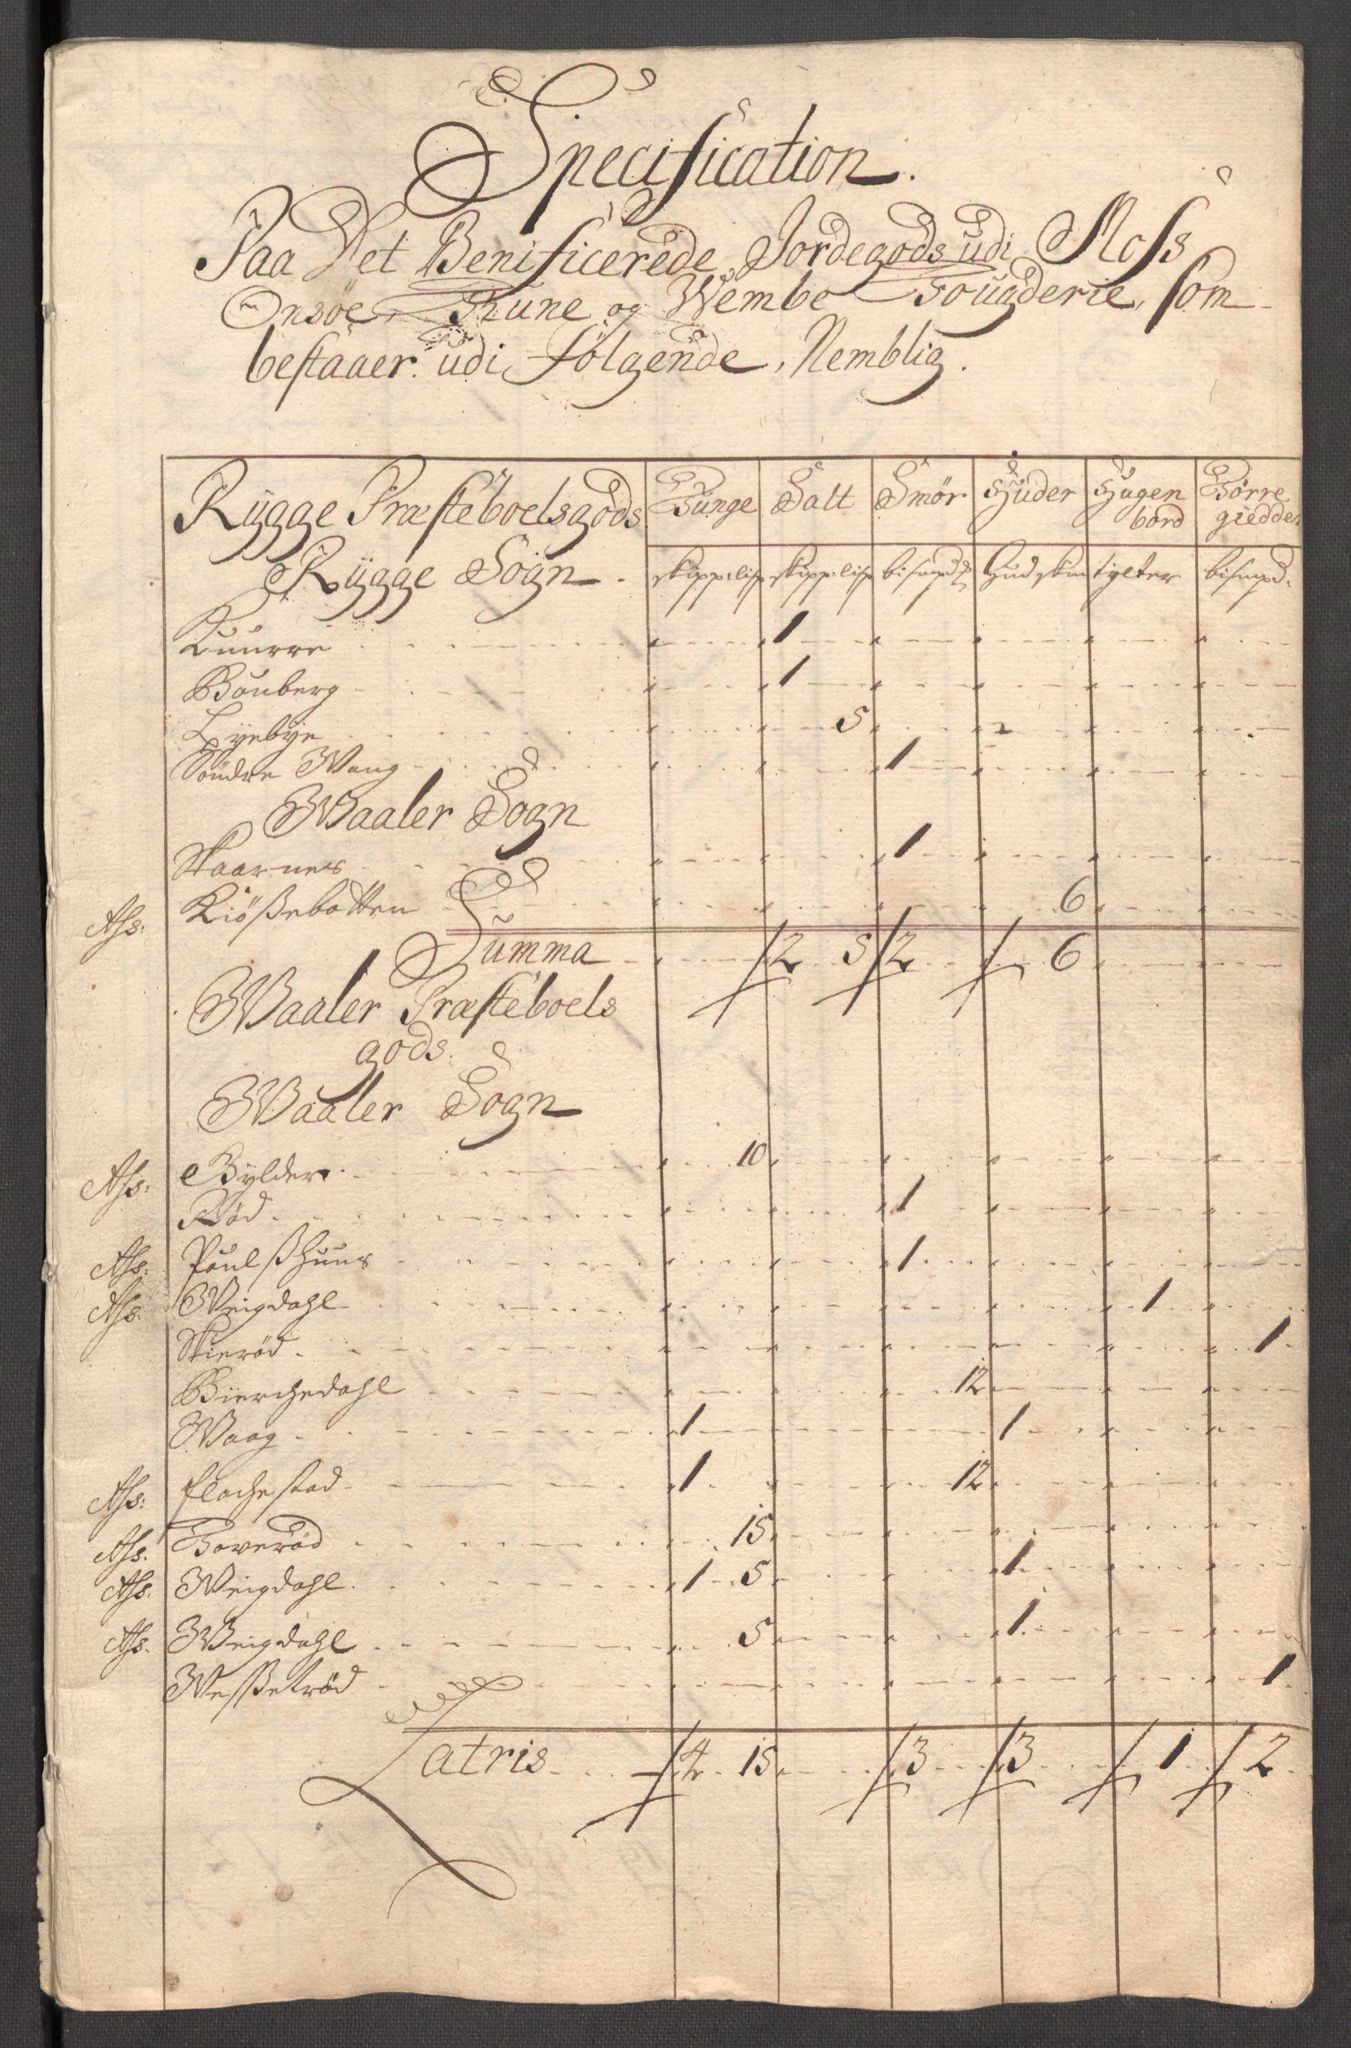 Specification.
Paa Det Benificerede Jordegods udi Moss
Onsøe, Thune og Wembe Fougderie, som
bestaaer udi Følgende, Nemblig.
Rygge Præsteboelsgods Tunge Salt Smör Huder Hugen bord Törre giedder
Rygge Sogn. skipp: lisp skipp: lisp bismpd Hud skin tylter bismpd.
Kuurre 1
Bouberg 1
Lyebye 5
Söndre Wang 1
Waaler Sogn
Skaarnes 1
Afs: Kiößebotten 6
Summa 2 5 2 6
Waaler Præsteboels
gods.
Waaler Sogn
Afs: Bylder 10
Röd 1
Afs: Poulsshuus 1
Afs: Weigdahl 1
Skieröd 1
Bierchedahl 12
Waag 1 1
Afs: Flachestad 1 12
Afs. Boveröd 15
Afs. Weigdahl 1 5 1
Afs. Weigdahl 5 1
Wesseltröd 1
Latris 4 15 3 3 1 2